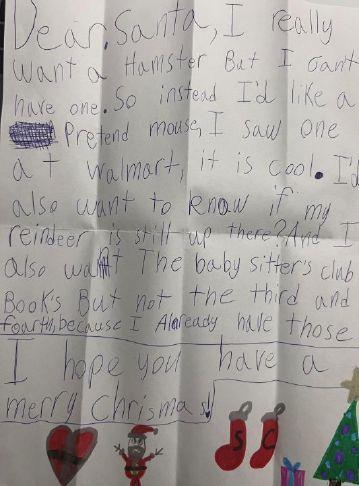 Dear, Santa, I really
want a Hamster But I cant
have one. So instead I'd like a
Pretend mouse, I saw one
at walmart, it is cool. I'd
also want to know if my
reindeer is still up there? And I
also want The baby sitter's club
Book's But not the third and
fourth, because I Already have those
I hope you have a
merry Chrismas!
S C